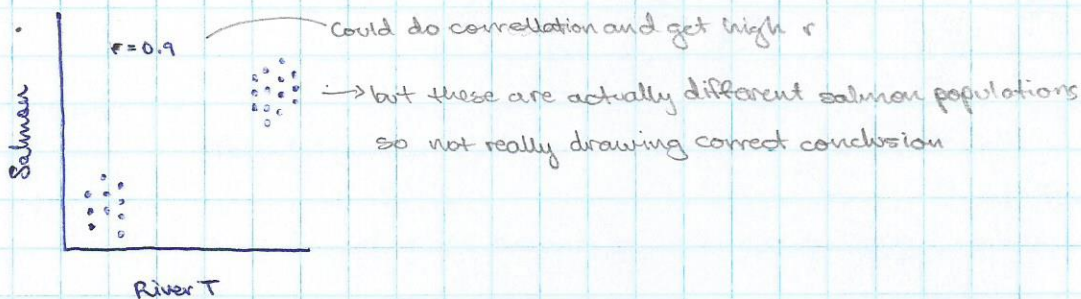 Could do correllation and get high r
r=0.9
→ but these are actually different salmon populations
so not really drawing correct conclusion
Salmon
River T